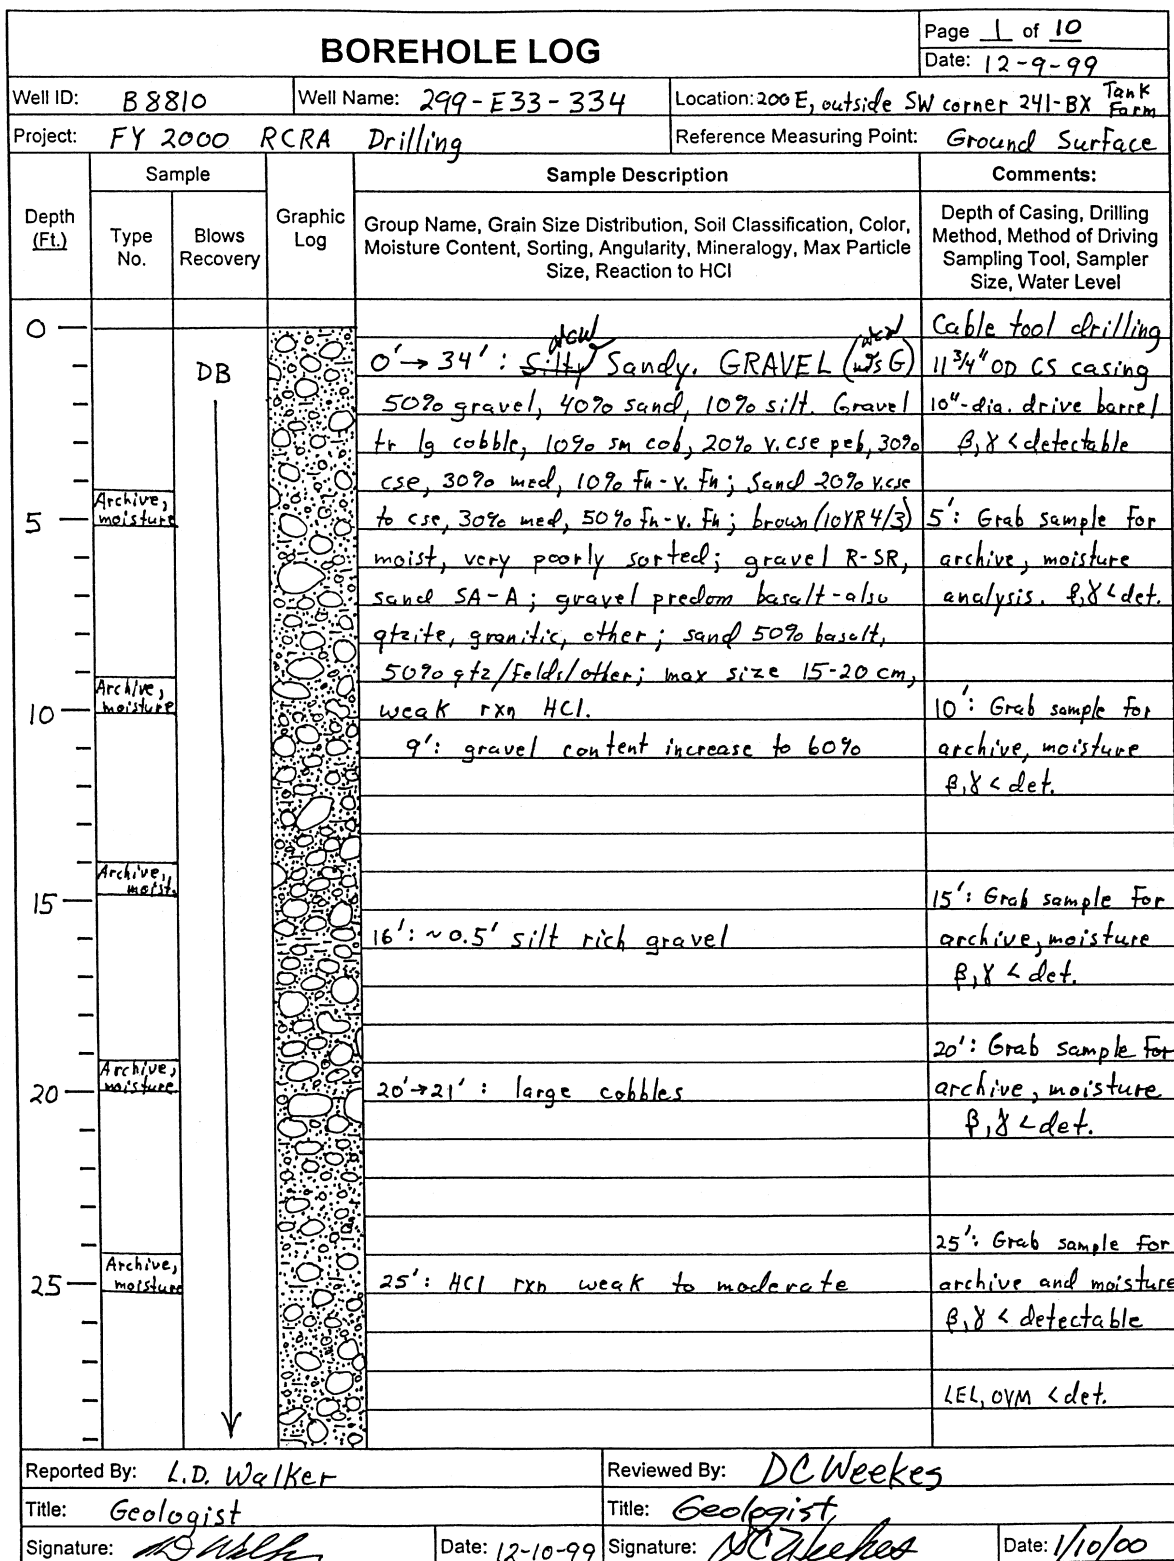 BOREHOLE LOG
Page 1 of 10
Date: 12-9-99
Well ID: B8810
Well Name: 299-E33-334
Location: 200 E, outside SW corner 241-BX Tank Farm
Project: FY 2000 RCRA Drilling
Reference Measuring Point: Ground Surface
Depth (Ft.)
Sample
Type No.
Blows Recovery
Graphic Log
Sample Description
Group Name, Grain Size Distribution, Soil Classification, Color,
Moisture Content, Sorting, Angularity, Mineralogy, Max Particle
Size, Reaction to HCl
Comments:
Depth of Casing, Drilling
Method, Method of Driving
Sampling Tool, Sampler
Size, Water Level
0
DB
5
10
15
20
25
Archive,
moisture
Archive,
moisture
Archive,
moist.
Archive,
moisture
Archive,
moisture
DCW DCW
0' → 34' : Silty Sandy. GRAVEL (msG)
50% gravel, 40% sand, 10% silt. Gravel
tr lg cobble, 10% sm cob, 20% v.cse peb, 30%
cse, 30% med, 10% fn-v. fn; Sand 20% v.cse
to cse, 30% med, 50% fn-v. fn; brown (10YR 4/3)
moist, very poorly sorted; gravel R-SR,
sand SA-A; gravel predom basalt-also
qtzite, granitic, other; sand 50% basalt,
50% qtz/felds/other; max size 15-20 cm,
weak rxn HCl.
9': gravel content increase to 60%
16': ~0.5' silt rich gravel
20'→21' : large cobbles
25': HCl rxn weak to moderate
Cable tool drilling
11 3/4" OD CS casing
10"-dia. drive barrel
β,γ < detectable
5': Grab sample for
archive, moisture
analysis. β,γ < det.
10': Grab sample for
archive, moisture
β,γ < det.
15': Grab sample for
archive, moisture
β,γ < det.
20': Grab sample for
archive, moisture
β,γ < det.
25': Grab sample for
archive and moisture
β,γ < detectable
LEL, OVM < det.
Reported By: L.D. Walker
Reviewed By: DC Weekes
Title: Geologist
Title: Geologist
Signature: LD Walker
Date: 12-10-99
Signature: DC Weekes
Date: 1/10/00